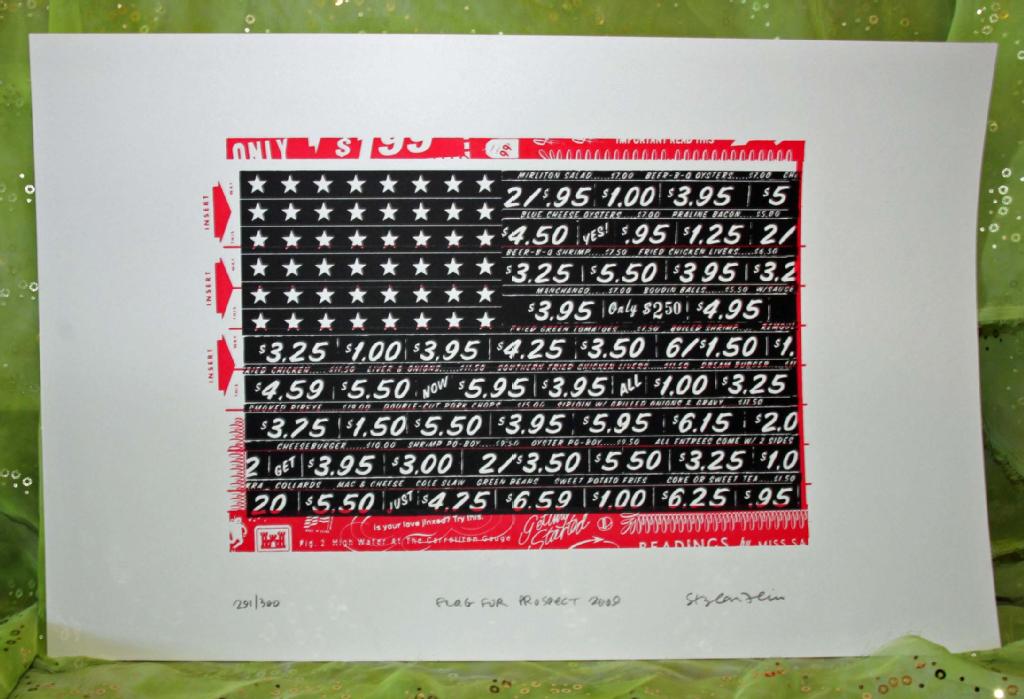 ONLY $199 99 IMPORTANT READ THIS
MIRLITON SALAD.....$7.00 BEER-B-Q OYSTERS.....$7.00 CH
2/$.95 $1.00 $3.95 $5
BLUE CHEESE OYSTERS.....$7.00 PRALINE BACON....$5.00
INSERT THIS WAY
$4.50 YES! $.95 $1.25 2/
BEER-B-Q SHRIMP.....$7.50 FRIED CHICKEN LIVERS.....$6.50
INSERT THIS WAY
$3.25 $5.50 $3.95 $3.2
MENCHANGO.....$7.00 BOUDIN BALLS.....$5.50 W/SAUCE
$3.95 Only $2.50 $4.95
FRIED GREEN TOMATOES.....$7.50 BOILED SHRIMP.... REMOUL
INSERT THIS WAY
$3.25 $1.00 $3.95 $4.25 $3.50 6/$1.50 $1.
IED CHICKEN.....$11.50 LIVER & ONIONS.....$11.50 SOUTHERN FRIED CHICKEN LIVERS.....$11.50 DREAM BURGER
$4.59 $5.50 NOW $5.95 $3.95 ALL $1.00 $3.25
SMOKED RIBEYE $19.00 DOUBLE-CUT PORK CHOPS $15.00 SIRLOIN W/ GRILLED ONIONS & GRAVY $12.50
$3.75 $1.50 $5.50 $3.95 $5.95 $6.15 $2.0
CHEESEBURGER.....$10.00 SHRIMP PO-BOY....$9.50 OYSTER PO-BOY....$9.50 ALL ENTREES COME W/ 2 SIDES
2 GET $3.95 $3.00 2/$3.50 $5.50 $3.25 $1.0
RA.. COLLARDS MAC & CHEESE COLE SLAW GREEN BEANS SWEET POTATO FRIES COKE OR SWEET TEA....$1.50
20 $5.50 JUST $4.75 $6.59 $1.00 $6.25 $.95
is your love jinxed? Try this.
Getting Started 1
Fig. 2 High Water At The Carrollton Gauge
READINGS by MISS SA
291/300 FLAG FOR PROSPECT 2008